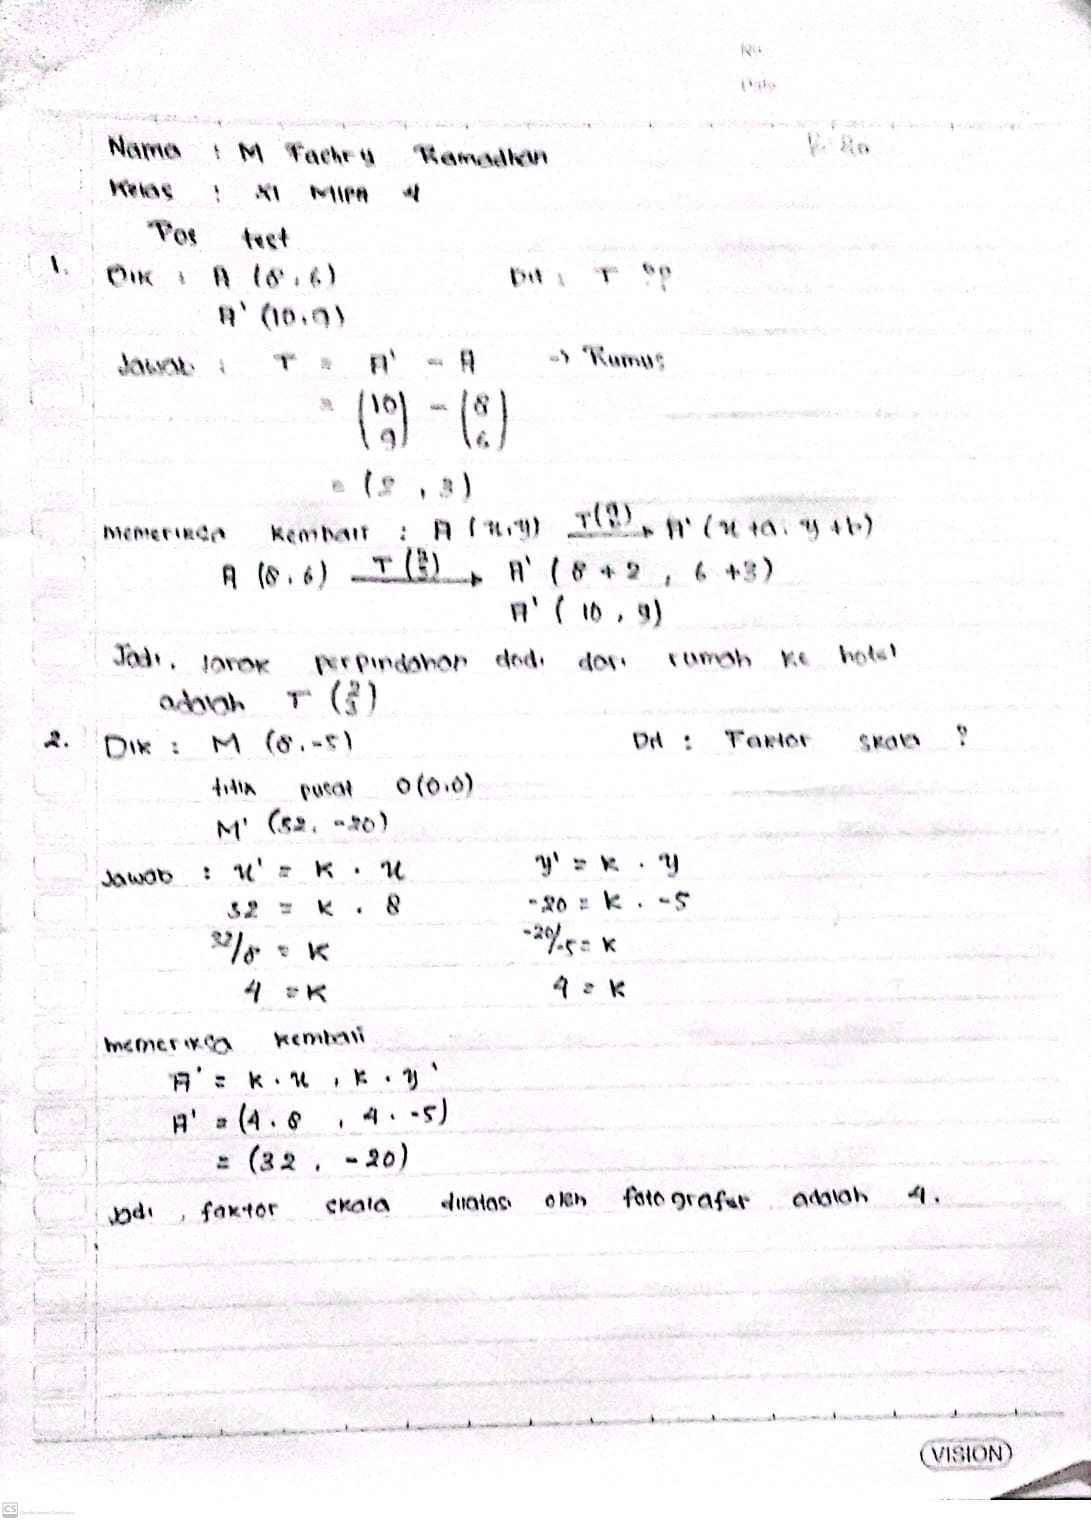 No
Date
Nama : M Fachry Ramadhan
Kelas : XI MIPA 4
Pos test
1. Dik : A (8,6) Dit : T ??
A' (10,9)
Jawab : T = A' - A -> Rumus
= (10 9) - (8 6)
= (2 , 3)
memeriksa kembali : A (x,y) T(a b) → A' (x+a, y+b)
A (8,6) T(2 3) → A' ( 8 + 2 , 6 +3)
A' ( 10 , 9)
Jadi, jarak perpindahan dodi dari rumah ke hotel
adalah T (2 3)
2. Dik : M (8,-5) Dit : Faktor skala ?
titik pusat O(0,0)
M' (32, -20)
Jawab : x' = k . x y' = k . y
32 = k . 8 -20 = k . -5
32/8 = k -20/-5 = k
4 = k 4 = k
memeriksa kembali
A' = k . x , k . y
A' = (4 . 8 , 4 . -5)
= (32 , -20)
Jadi , faktor skala dilatasi oleh fotografer adalah 4.
VISION
CS